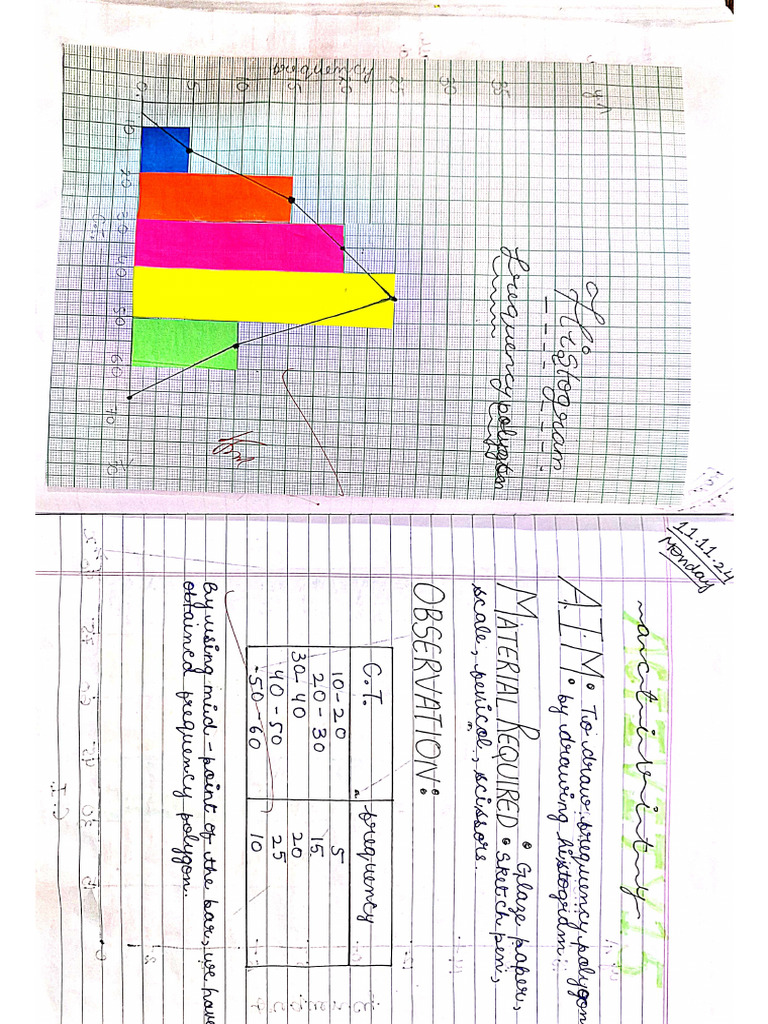 Histogram
frequency polygon
y
35
30
25
20
15
10
5
0
frequency
10
20
30
40
50
60
70
C.I.
11.11.24
Monday
ACTIVITY 15
AIM: To draw frequency polygon
by drawing histogram.
MATERIAL REQUIRED: Glaze paper,
sketch pen,
scale, fevicol, scissors.
OBSERVATION:
C.I. frequency
10-20 5
20-30 15
30-40 20
40-50 25
50-60 10
By using mid-point of the bar, we have
obtained frequency polygon.